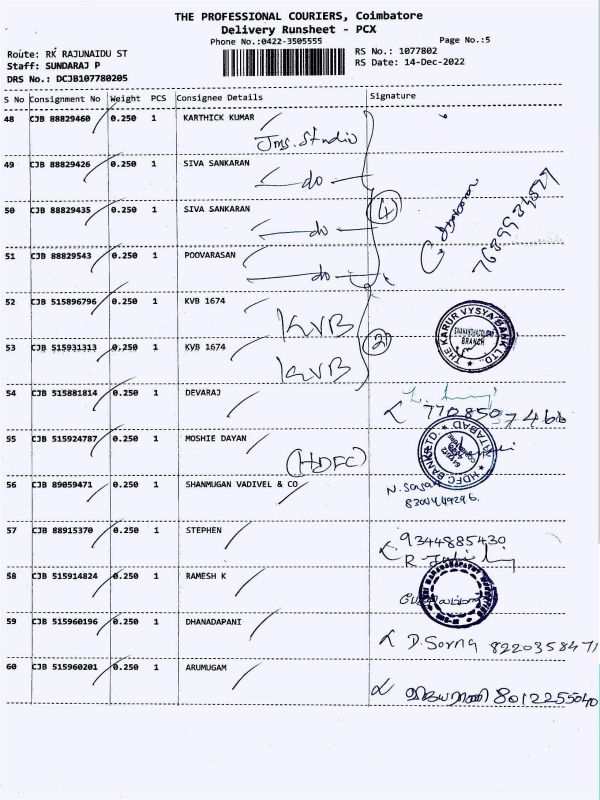 THE PROFESSIONAL COURIERS, Coimbatore
Delivery Runsheet - PCX
Phone No.:0422-3505555
Page No.:5
Route: RK RAJUNAIDU ST
RS No.: 1077802
Staff: SUNDARAJ P
RS Date: 14-Dec-2022
DRS No.: DCJB107780205
S No Consignment No Weight PCS Consignee Details Signature
48 CJB 88829460 0.250 1 KARTHICK KUMAR
Jms. Studio
49 CJB 88829426 0.250 1 SIVA SANKARAN
do
50 CJB 88829435 0.250 1 SIVA SANKARAN
4
do
51 CJB 88829543 0.250 1 POOVARASAN
do
52 CJB 515896796 0.250 1 KVB 1674
KVB
THE KARUR VYSYA BANK LTD.
BRANCH
2
53 CJB 515931313 0.250 1 KVB 1674
KVB
54 CJB 515881814 0.250 1 DEVARAJ
55 CJB 515924787 0.250 1 MOSHIE DAYAN
(HDFC)
HDFC BANK LTD.
56 CJB 89059471 0.250 1 SHANMUGAN VADIVEL & CO
57 CJB 88915370 0.250 1 STEPHEN
9344885430
58 CJB 515914824 0.250 1 RAMESH K
59 CJB 515960196 0.250 1 DHANADAPANI
D. Sorna 8220358471
60 CJB 515960201 0.250 1 ARUMUGAM
8012255040